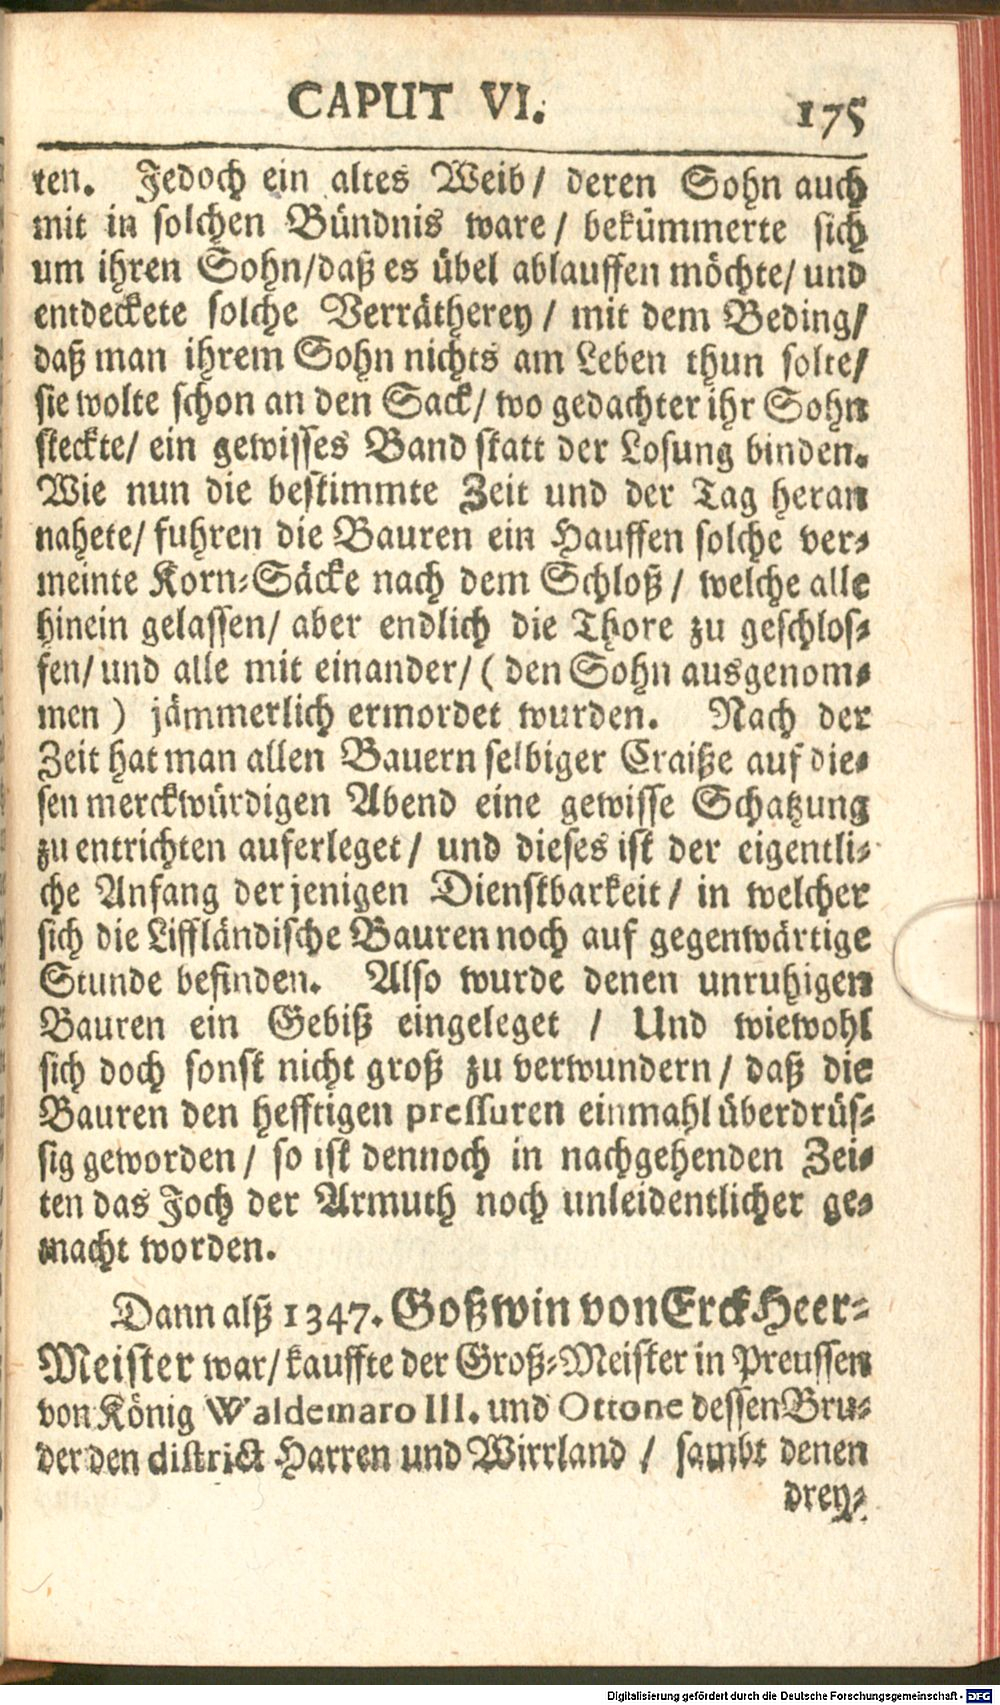 CAPUT VI. 175
ten. Jedoch ein altes Weib/ deren Sohn auch
mit in solchen Bündnis ware/ bekümmerte sich
um ihren Sohn/daß es übel ablauffen möchte/ und
entdeckete solche Verrätherey/ mit dem Beding/
daß man ihrem Sohn nichts am Leben thun solte/
sie wolte schon an den Sack/ wo gedachter ihr Sohn
steckte/ ein gewisses Band statt der Losung binden.
Wie nun die bestimmte Zeit und der Tag heran
nahete/ fuhren die Bauren ein Hauffen solche ver-
meinte Korn-Säcke nach dem Schloß/ welche alle
hinein gelassen/ aber endlich die Thore zu geschlos-
sen/ und alle mit einander/ ( den Sohn ausgenom-
men ) jämmerlich ermordet wurden. Nach der
Zeit hat man allen Bauern selbiger Craiße auf die-
sen merckwürdigen Abend eine gewisse Schatzung
zu entrichten auferleget/ und dieses ist der eigentli-
che Anfang der jenigen Dienstbarkeit/ in welcher
sich die Liffländische Bauren noch auf gegenwärtige
Stunde befinden. Also wurde denen unruhigen
Bauren ein Gebiß eingeleget / Und wiewohl
sich doch sonst nicht groß zu verwundern/ daß die
Bauren den hefftigen pressuren einmahl überdrüs-
sig geworden/ so ist dennoch in nachgehenden Zei-
ten das Joch der Armuth noch unleidentlicher ge-
macht worden.
Dann alß 1347. Goßwin von Erck Heer-
Meister war/ kauffte der Groß-Meister in Preussen
von König Waldemaro III. und Ottone dessen Bru-
der den district Harren und Wirrland / sambt denen
drey-
Digitalisierung gefördert durch die Deutsche Forschungsgemeinschaft - DFG